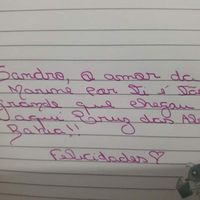 Sandro, o amor da
Marume por Ti é Tão
grande que chegou
aqui Cruz das Al
Bahia!!
Felicidades♡